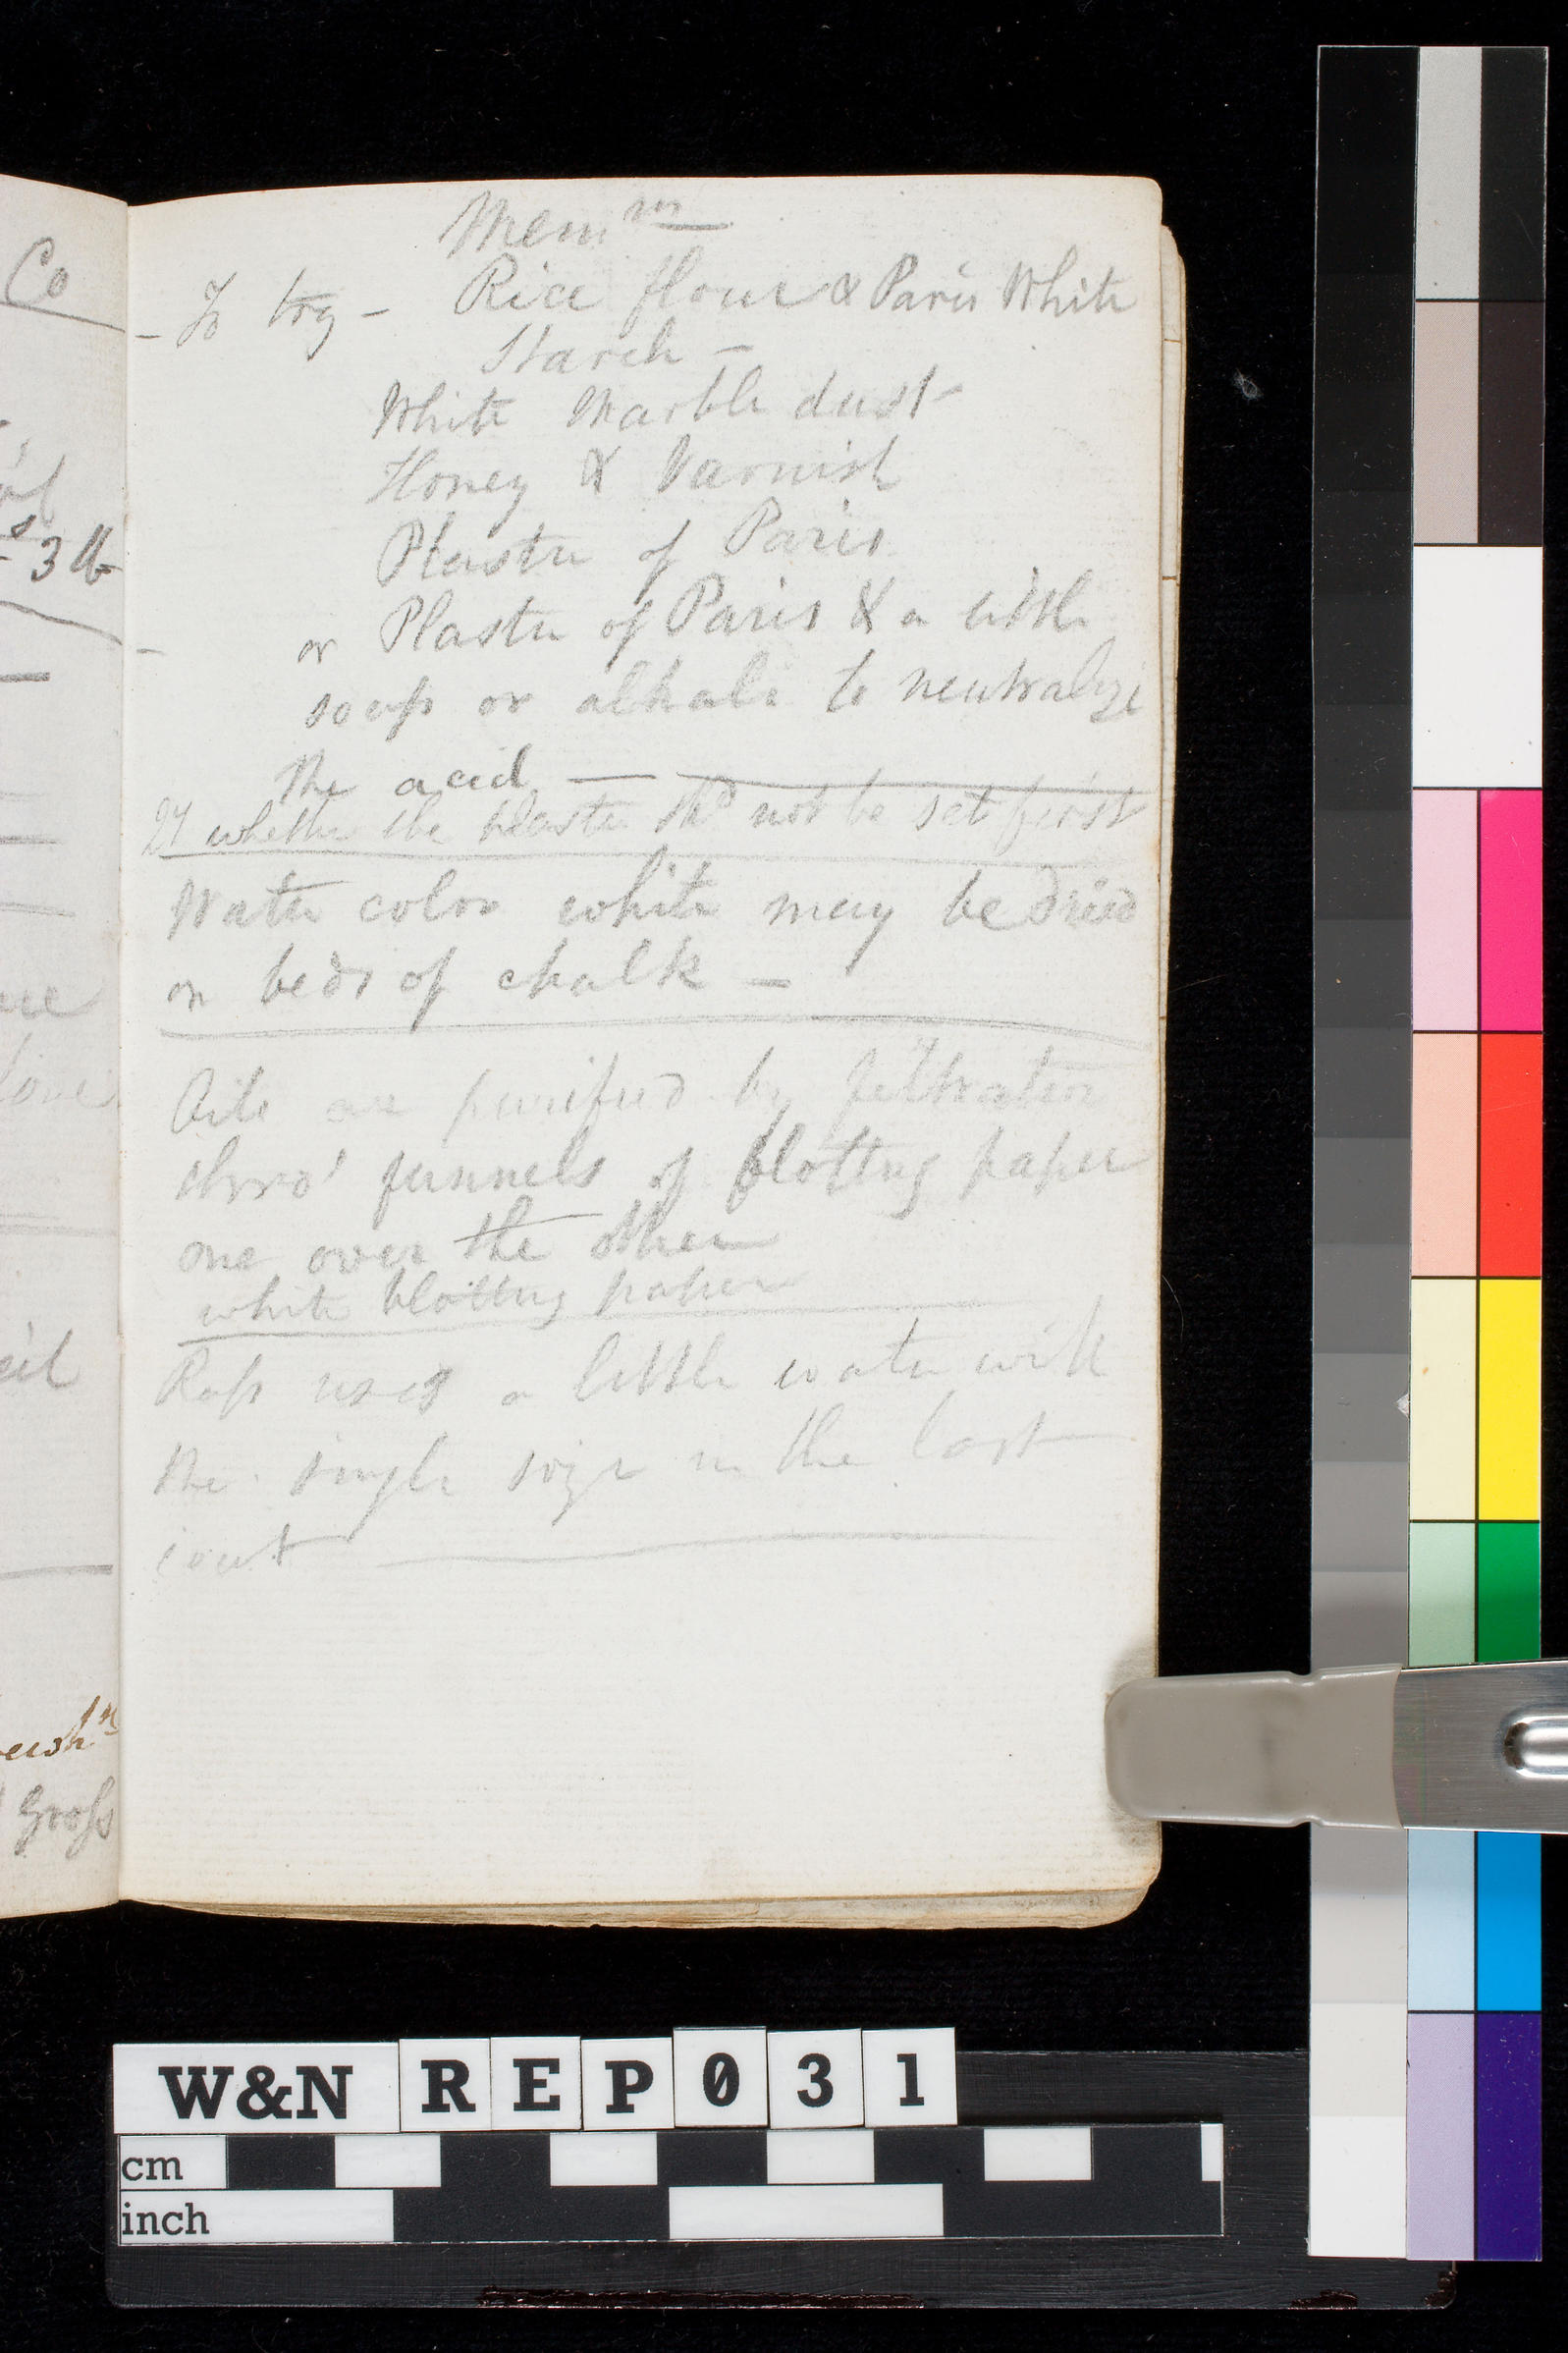 Co
3 lb
Gross
Mem^m
- To try - Rice flour & Paris White
Starch -
White Marble dust -
Honey & Varnish
Plaster of Paris
or Plaster of Paris & a little
soap or alkali to neutralize
the acid —
Qy whether the plaster shd not be set first
Water color white may be dried
on beds of chalk -
Oils are purified by filtration
thro' funnels of blotting paper
one over the other
white blotting paper
Ross uses a little water with
the single size in the last
coat
W&N REP031
cm
inch